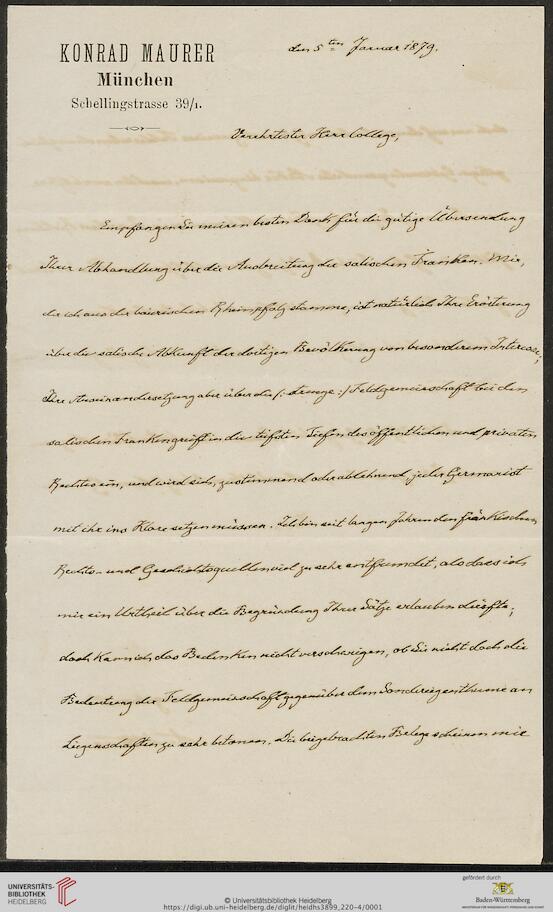 KONRAD MAURER
München
Schellingstrasse 39/1.
den 5ten Januar 1879.
Verehrtester Herr College,
Empfangen Sie meinen besten Dank für die gütige Übersendung
Ihrer Abhandlung über die Ausbreitung der salischen Franken. Mir,
der ich aus der baierischen Rheinpfalz stamme, ist natürlich Ihre Erörterung
über die salische Abkunft der dortigen Bevölkerung von besonderem Interesse;
Ihre Auseinandersetzung aber über die /: strenge :/ Feldgemeinschaft bei den
salischen Franken greift in die tiefsten Tiefen des öffentlichen und privaten
Rechtes ein, und wird sich, zustimmend oder ablehnend, jeder Germanist
mit ihr ins Klare setzen müssen. Ich bin seit langen Jahren den fränkischen
Rechts- und Geschichtsquellen viel zu sehr entfremdet, als dass ich
mir ein Urtheil über die Begründung Ihrer Sätze erlauben dürfte;
doch kann ich das Bedenken nicht verschweigen, ob Sie nicht doch die
Bedeutung der Feldgemeinschaft gegenüber dem Sondereigenthume an
Liegenschaften zu sehr betonen. Die beigebrachten Belege scheinen mir
UNIVERSITÄTS-
BIBLIOTHEK
HEIDELBERG
© Universitätsbibliothek Heidelberg
https://digi.ub.uni-heidelberg.de/diglit/heidhs3899_220-4/0001
gefördert durch
Baden-Württemberg